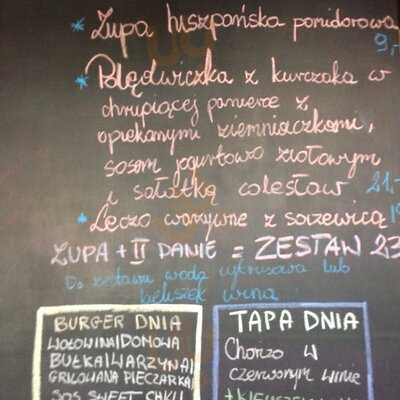 * Zupa hiszpańska pomidorowa
9,-
* Polędwiczka z kurczaka w
chrupiącej panierce z
opiekanymi ziemniaczkami,
sosem jogurtowo ziołowym
i sałatką colesław 21,-
* Leczo warzywne z soczewicą
ZUPA + II DANIE = ZESTAW 23
Do zestawu woda cytrusowa lub
kieliszek wina
BURGER DNIA
WOŁOWINA DOMOWA
BUŁKA WARZYWA
GRILOWANA PIECZARKA
SOS SWEET CHILI
TAPA DNIA
Chorizo w
czerwonym winie